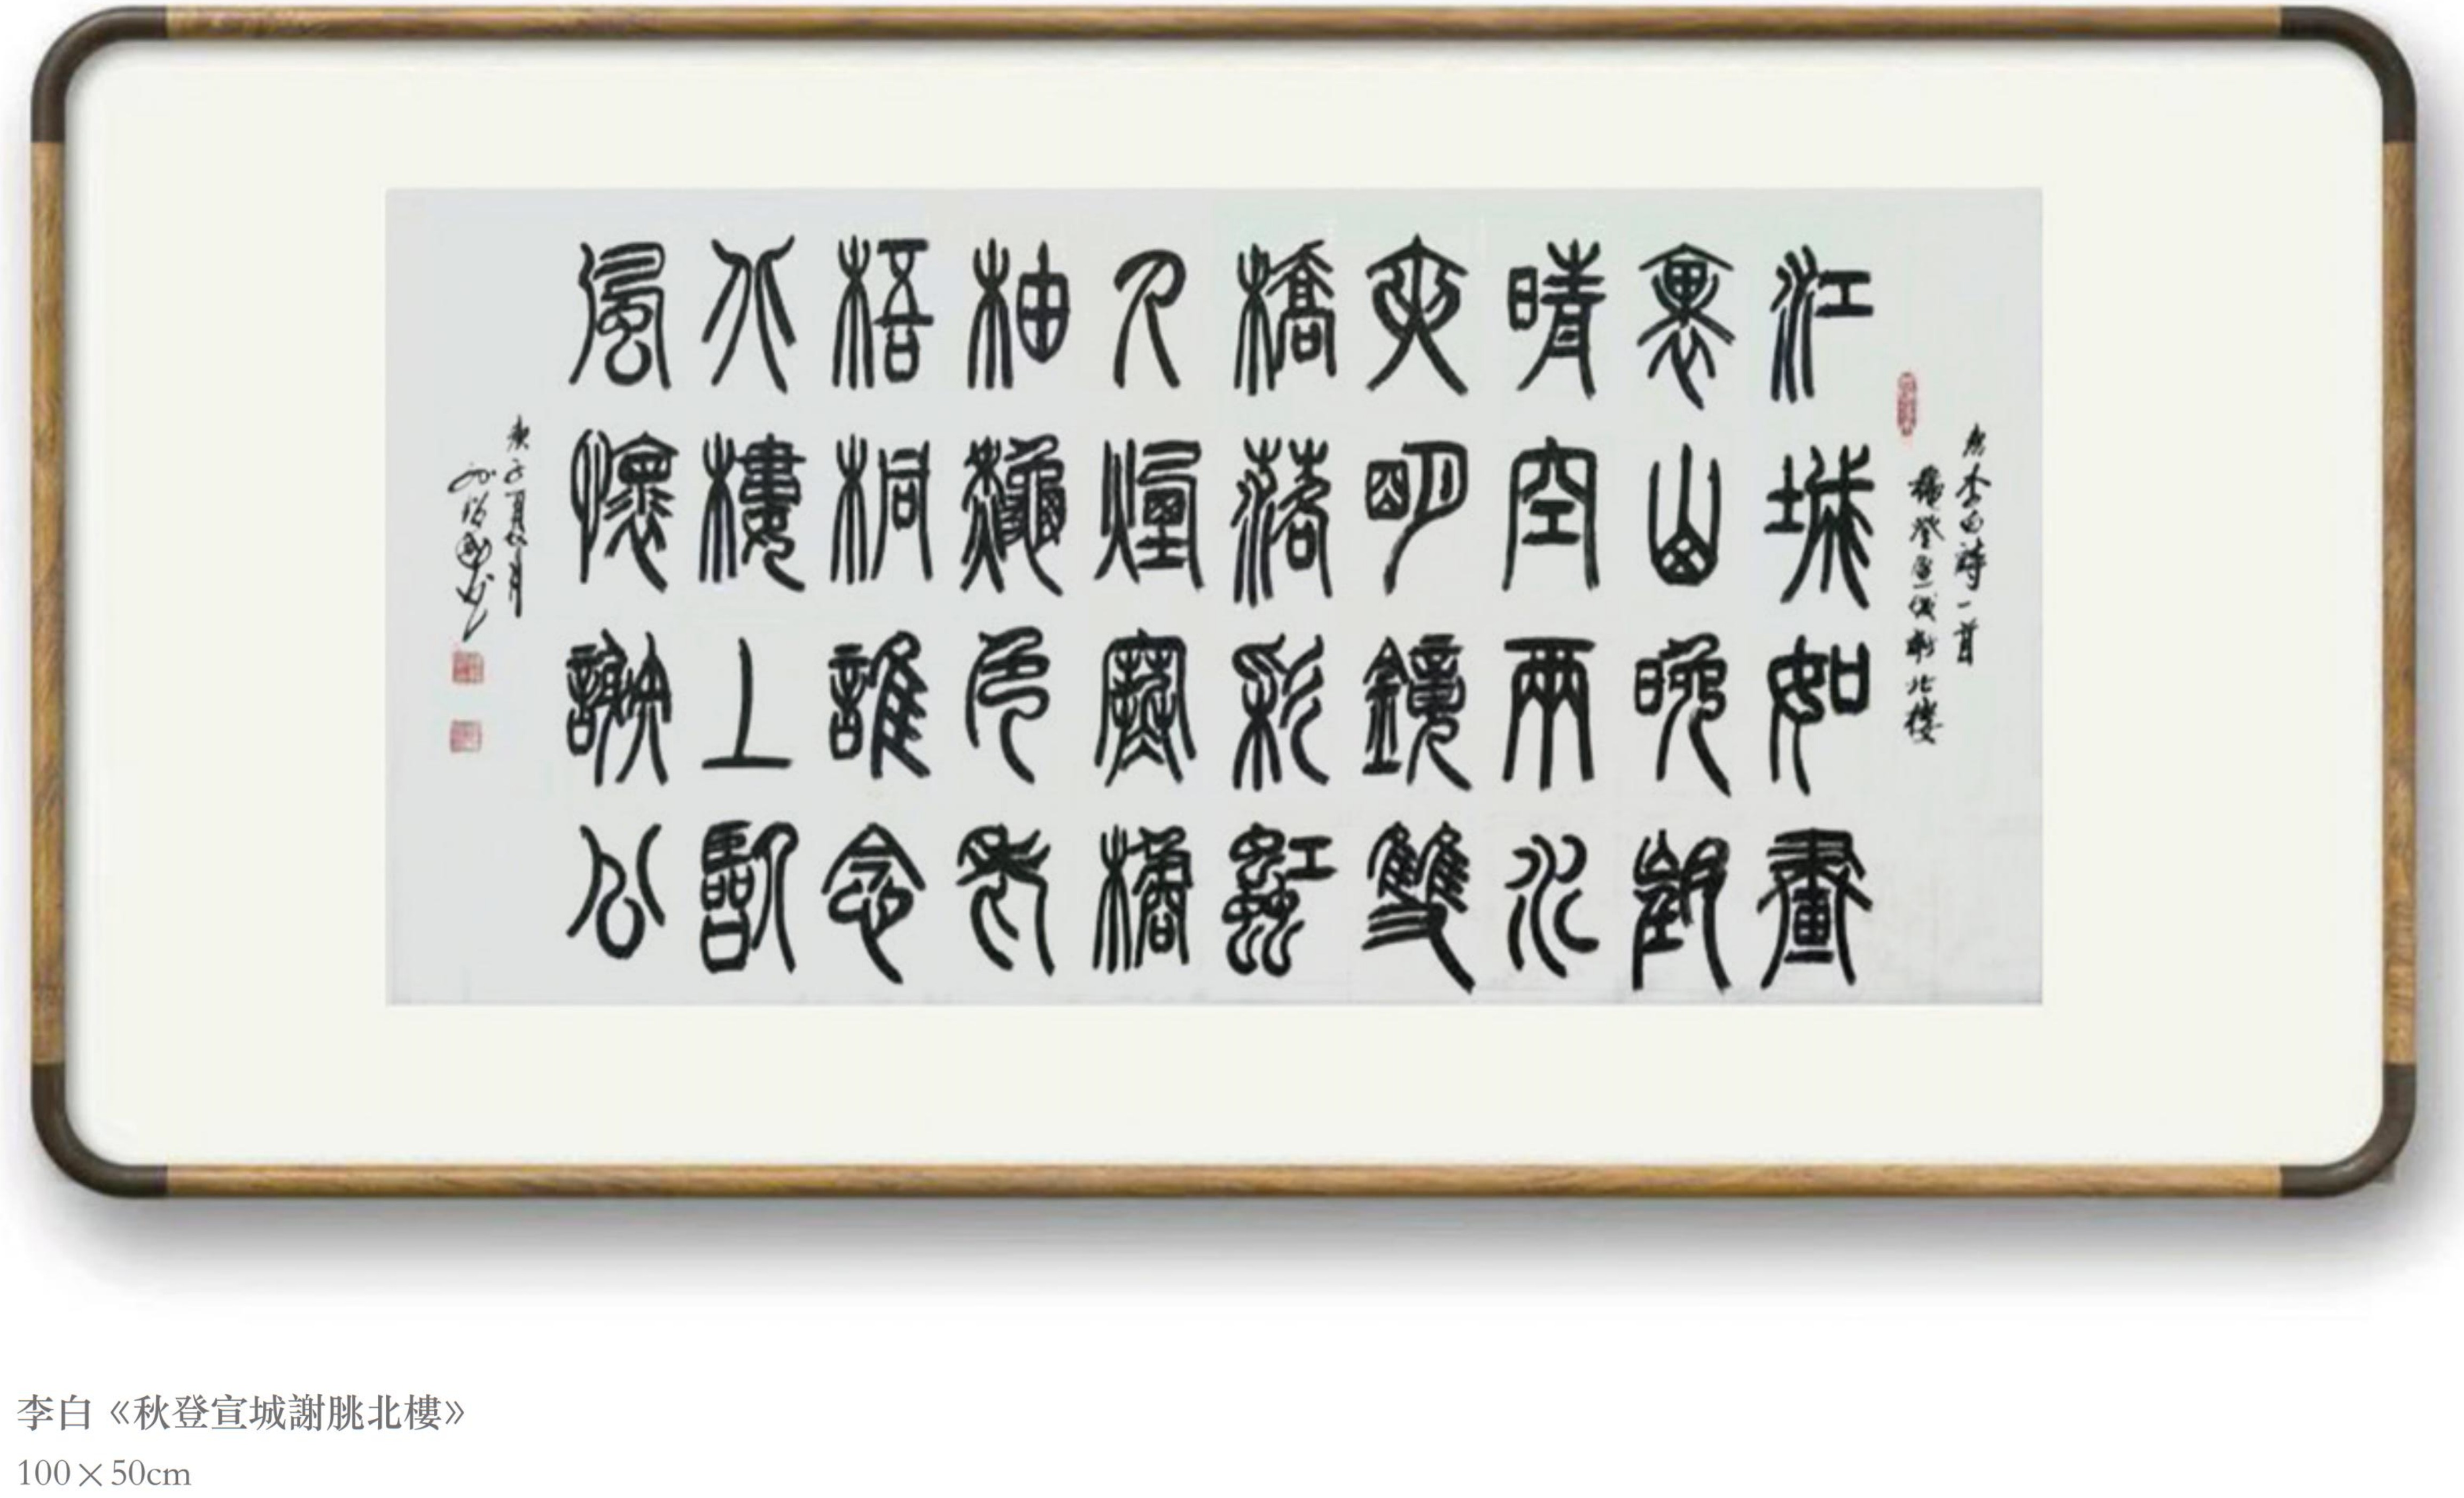 李白詩一首
秋登宣城謝北樓
江城如畫
裏山晚望
晴空兩水
夾明鏡雙
橋落彩虹
人煙寒橘
柚秋色老
梧桐誰念
北樓上臨
風懷謝公
庚子夏月
李白《秋登宣城謝朓北樓》
100×50cm